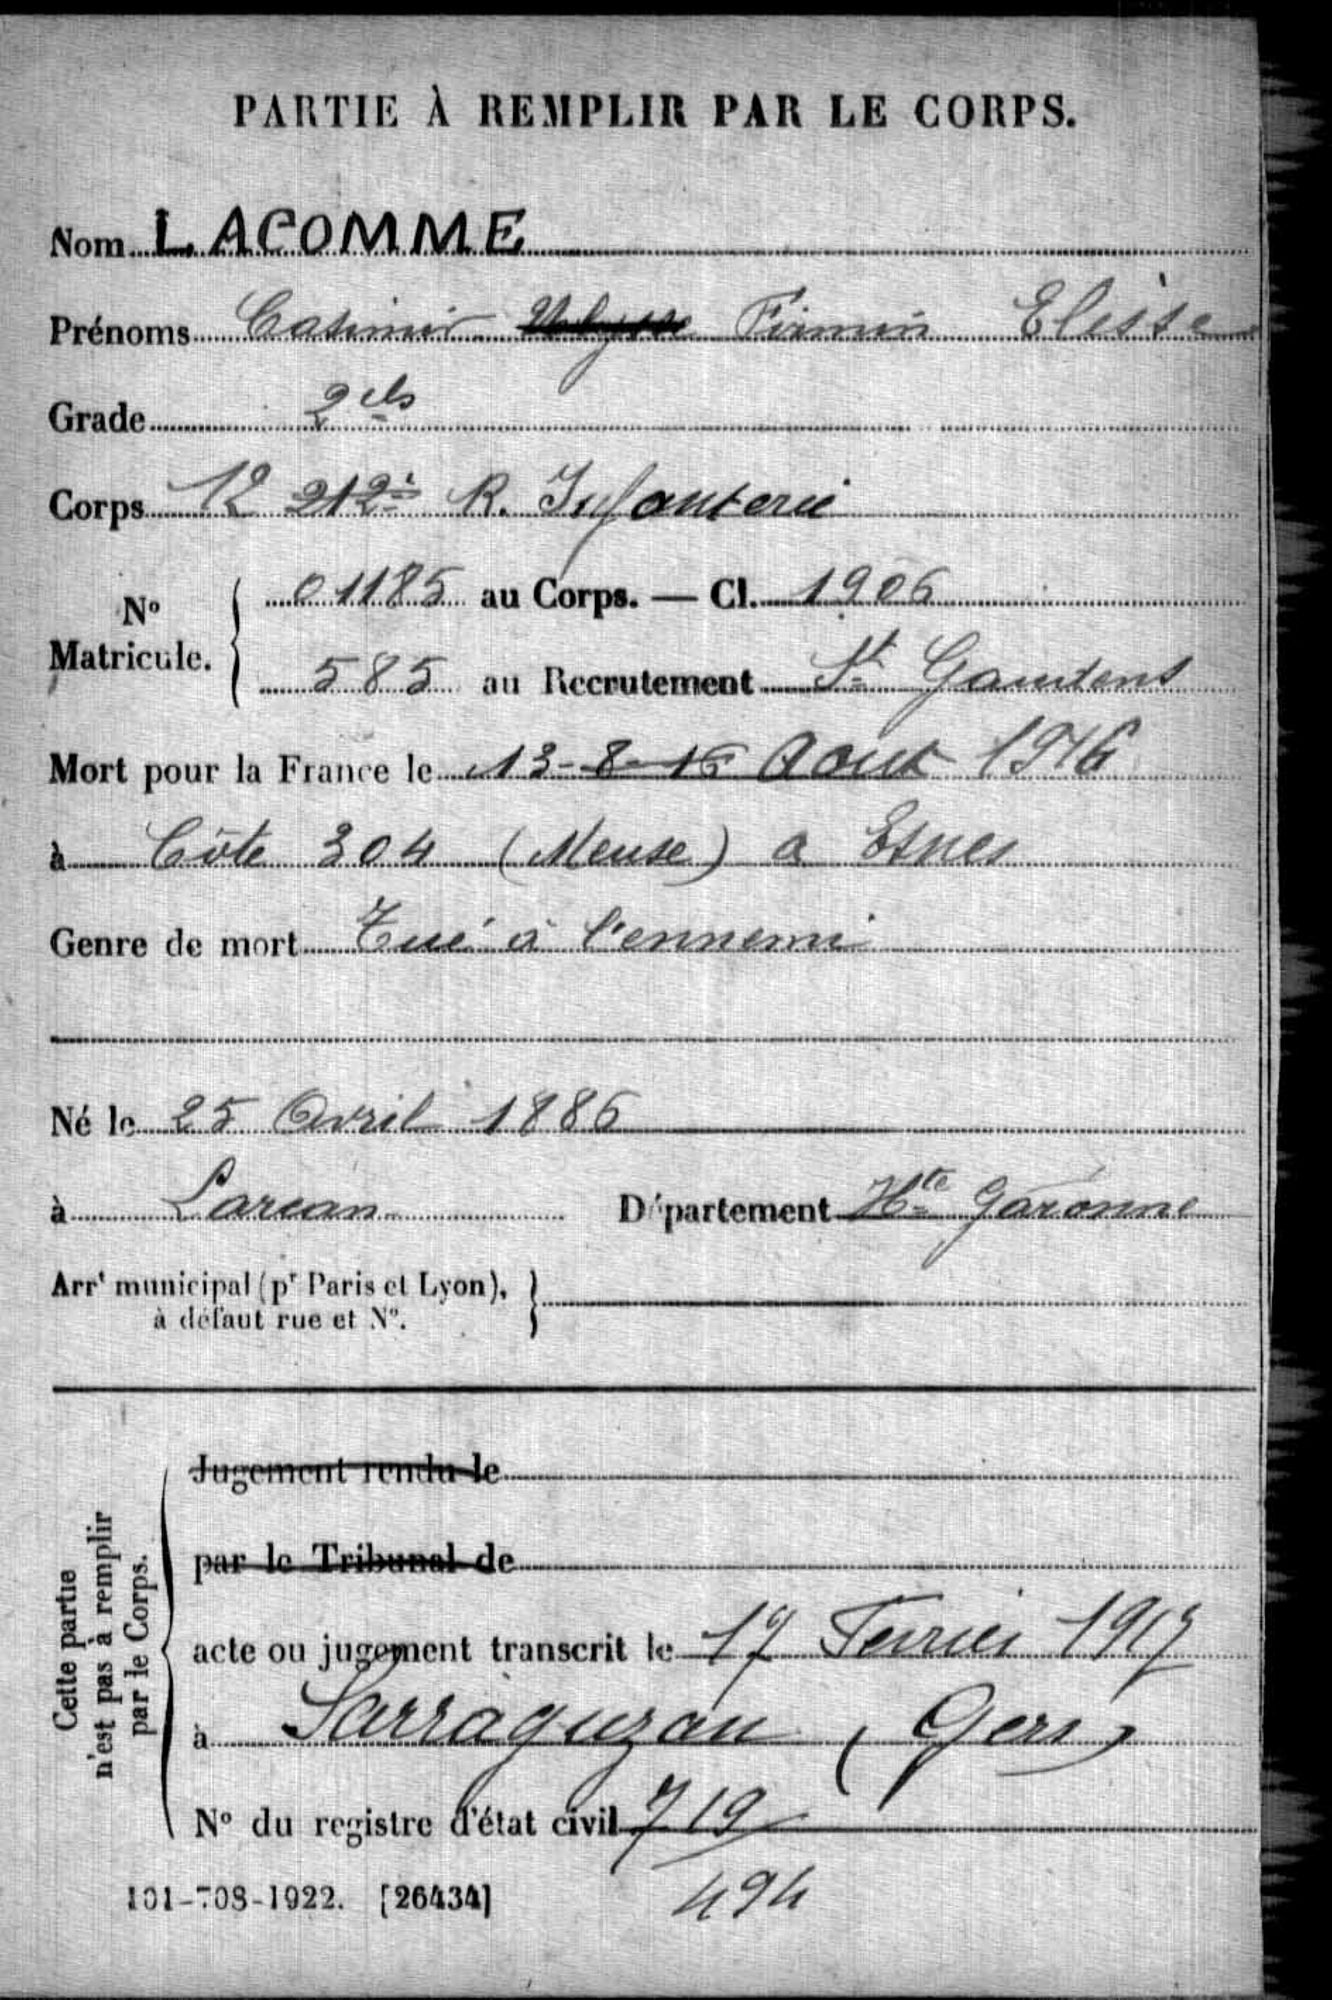 PARTIE À REMPLIR PAR LE CORPS.
Nom LACOMME
Prénoms Casimir Ulysse Firmin Elisse
Grade 2 cls
Corps 12 212e R. Infanterie
N° Matricule. 01185 au Corps. — Cl. 1906
585 au Recrutement St Gaudens
Mort pour la France le 13-8-16 Aout 1916
à Côte 304 (Meuse) a Esnes
Genre de mort Tué à l'ennemi
Né le 25 Avril 1886
à Larcan Département Hte Garonne
Arrt municipal (pr Paris et Lyon),
à défaut rue et N°.
Cette partie
n'est pas à remplir
par le Corps.
Jugement rendu le
par le Tribunal de
acte ou jugement transcrit le 17 Fevrier 1917
à Sarraguzan (Gers)
N° du registre d'état civil 719
494
101-708-1922. [26434]